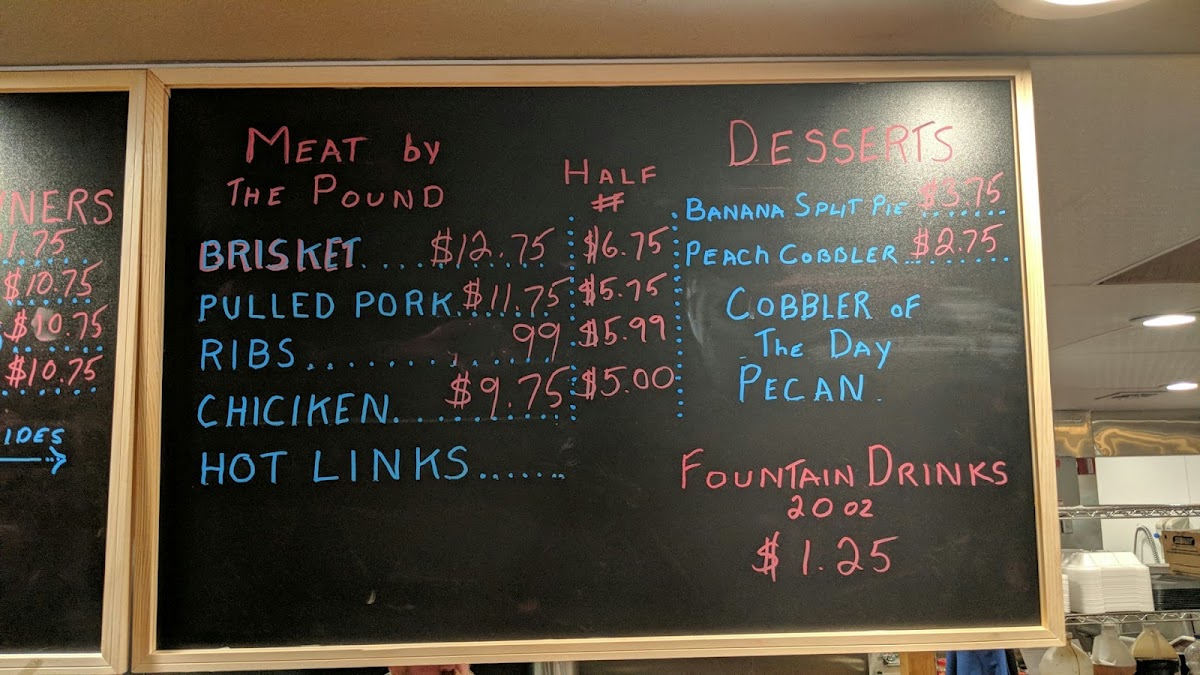 NERS
1.75
$10.75
$10.75
$10.75
IDES
MEAT by
THE POUND
HALF
#
BRISKET.......... $12.75 $6.75
PULLED PORK....... $11.75 $5.75
RIBS............. 99 $5.99
CHICIKEN.......... $9.75 $5.00
HOT LINKS.......
DESSERTS
BANANA SPLIT PIE ....... $3.75
PEACH COBBLER......... $2.75
COBBLER OF
The DAY
PECAN
FOUNTAIN DRINKS
20 oz
$1.25